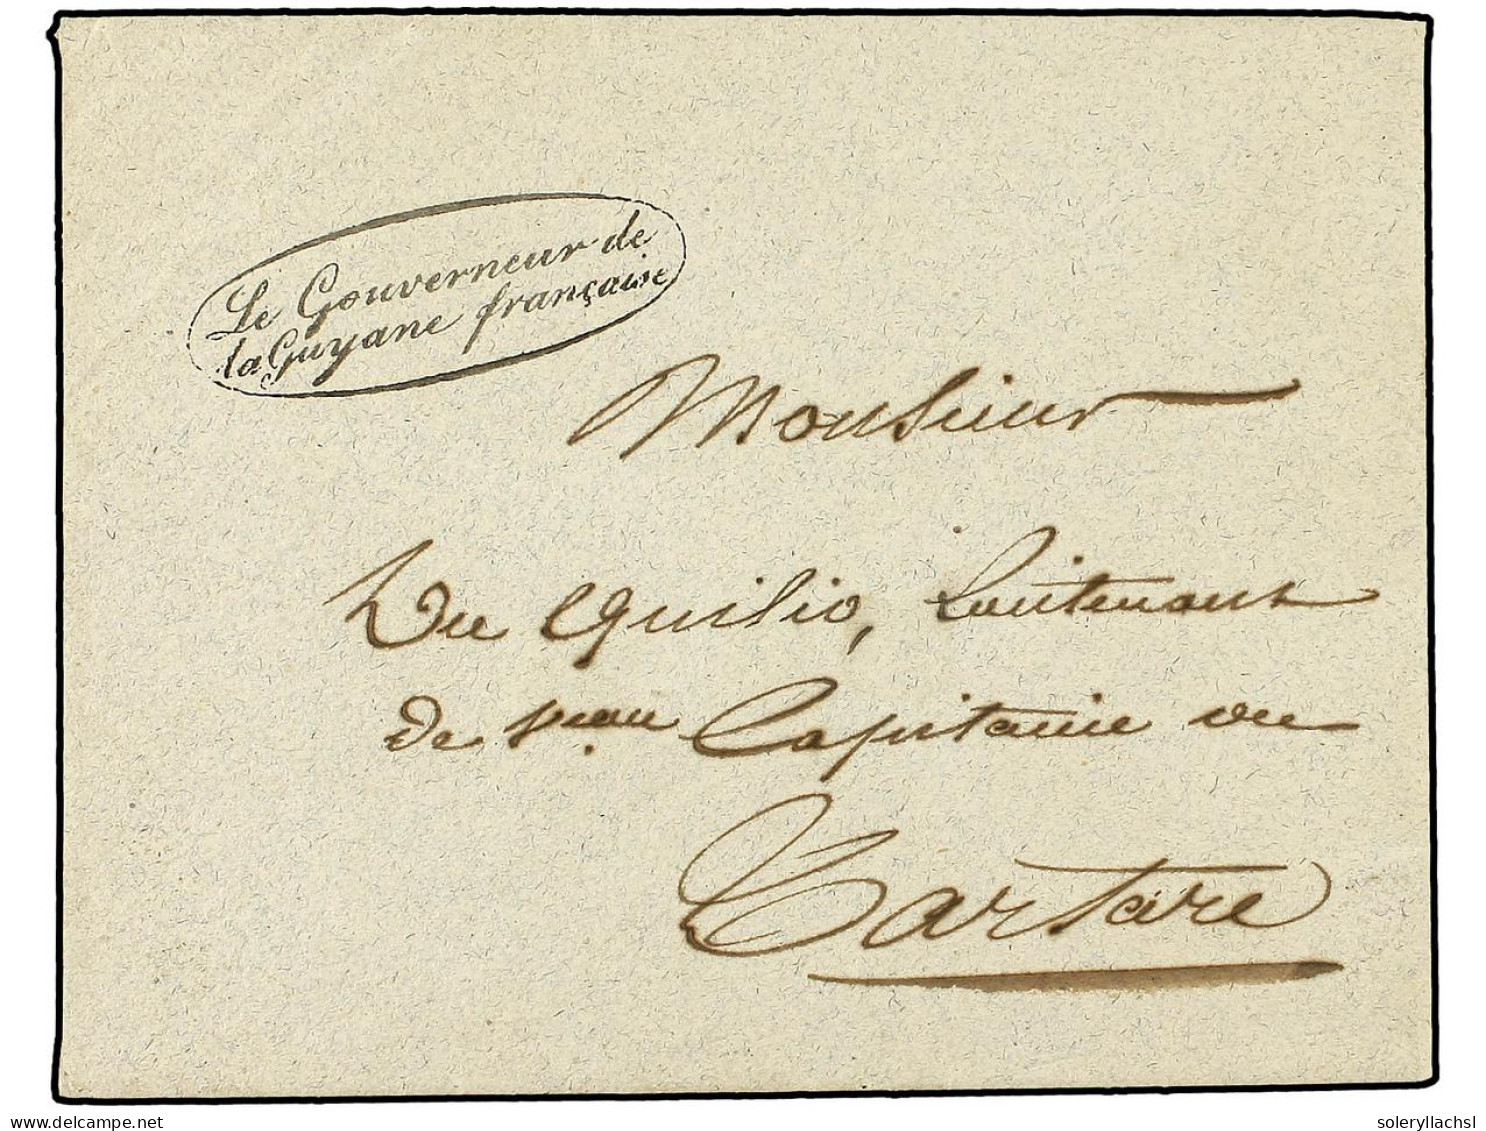 Le Gouverneur de
la Guyane française
Monsieur
Du Equilio, Lieutenant
de Vseau Capitaine du
Tartare
www.delcampe.net
soleryllachsl